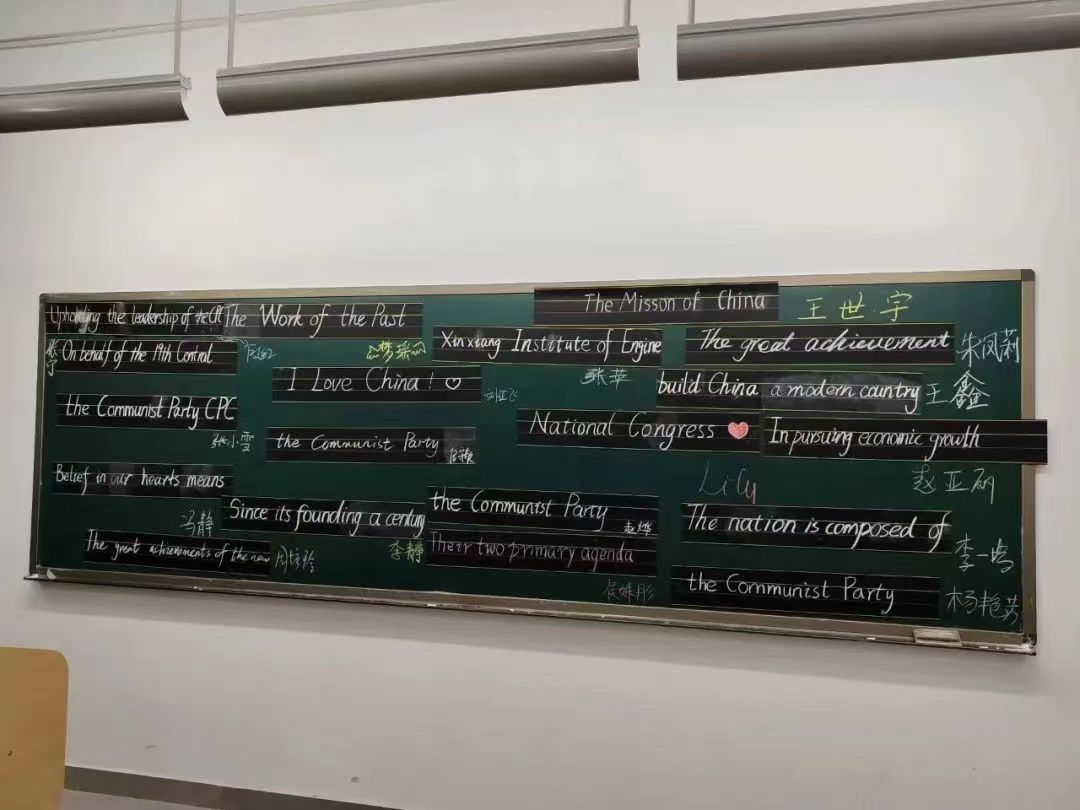 The Misson of China
王世宇
Uphoulding the leadership of the CPC
The Work of the Past
Xinxiang Institute of Engine
The great achievement
朱凤莉
On behalf of the 19th Central
张苹
I Love China! ♡
build China a modern country
王鑫
the Communist Party CPC
National Congress ❤
In pursuing economic growth
张小雪
the Communist Party
LiCy
赵亚丽
Belief in our hearts means
the Communist Party
Since its founding a century
The nation is composed of
马静
李静
李一鸣
The great achievements of the new
Their two primary agenda
the Communist Party
杨艳芳